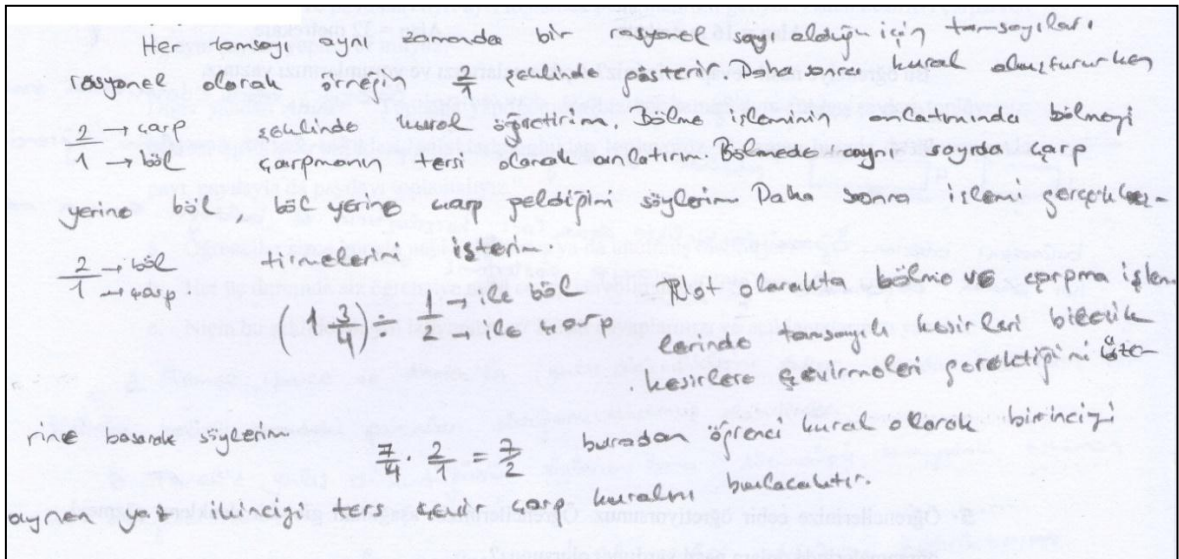 Her tamsayı aynı zamanda bir rasyonel sayı olduğu için tamsayıları
rasyonel olarak örneğin 2/1 şeklinde gösterir. Daha sonra kural oluştururken
2/1 → çarp → böl şeklinde kural öğretirim. Bölme işleminin anlatımında bölmeyi
çarpmanın tersi olarak anlatırım. Bölmede aynı sayıda çarp
yerine böl, böl yerine çarp geldiğini söylerim Daha sonra işlemi gerçekleş-
2/1 → böl → çarp. tirmelerini isterim.
(1 3/4) ÷ 1/2 → ile böl → ile çarp Not olarakta bölme ve çarpma işlem
lerinde tamsayılı kesirleri bileşik
kesirlere çevirmeleri gerektiğini üste-
rine basarak söylerim
7/4 . 2/1 = 7/2 buradan öğrenci kural olarak birinciyi
aynen yaz ikinciyi ters çevir çarp kuralını bulacaktır.
5- Öğrencilerinize cebir öğretiyorsunuz.